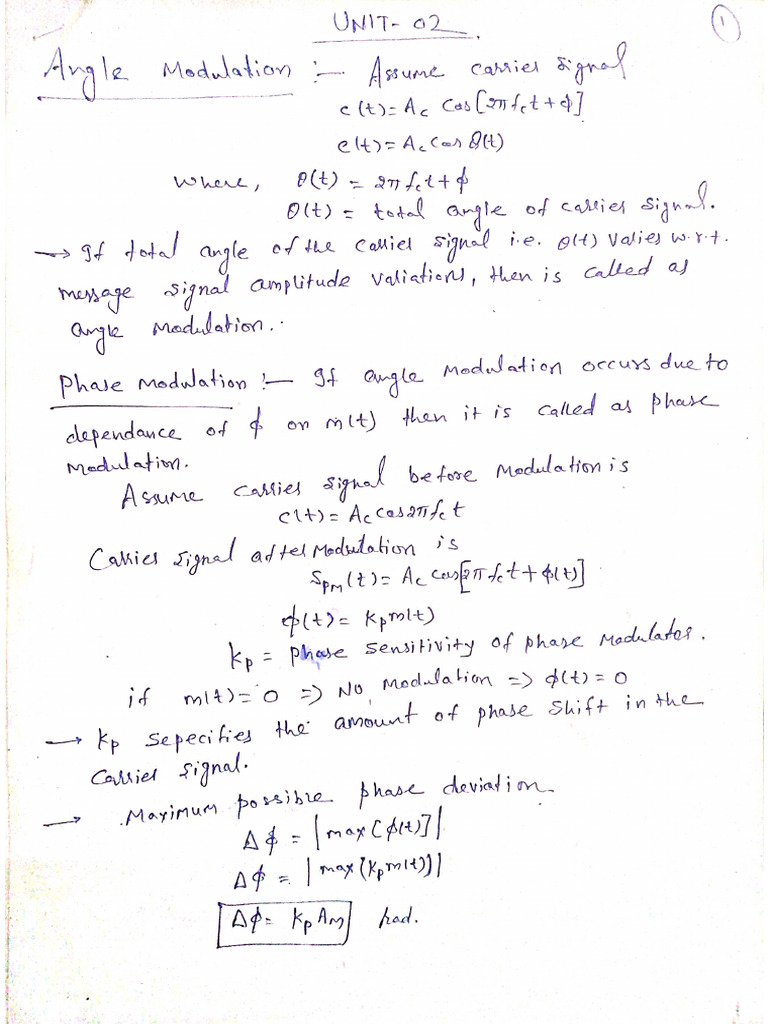 UNIT-02
1
Angle Modulation :— Assume carrier signal
c(t) = Ac Cos[2πfct+ϕ]
c(t) = Ac cos θ(t)
where, θ(t) = 2πfct+ϕ
θ(t) = total angle of carrier signal.
→ If total angle of the carrier signal i.e. θ(t) varies w.r.t.
message signal amplitude variations, then is called as
angle modulation.
Phase Modulation :— If angle modulation occurs due to
dependance of ϕ on m(t) then it is called as phase
Modulation.
Assume carrier signal before modulation is
c(t) = Ac cos2πfct
Carrier signal after Modulation is
SPM(t) = Ac cos[2πfct+ϕ(t)]
ϕ(t) = Kpm(t)
Kp = phase sensitivity of phase Modulator.
if m(t) = 0 ⇒ No Modulation ⇒ ϕ(t) = 0
→ Kp sepecifies the amount of phase shift in the
carrier signal.
→ Maximum possible phase deviation
Δϕ = |max[ϕ(t)]|
Δϕ = |max{Kpm(t)}|
Δϕ = KpAm rad.